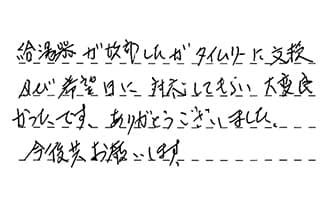 給湯器が故障したがタイムリーに交換
及び希望日に対応してもらい大変良
かったです。ありがとうございました。
今後共お願いします。